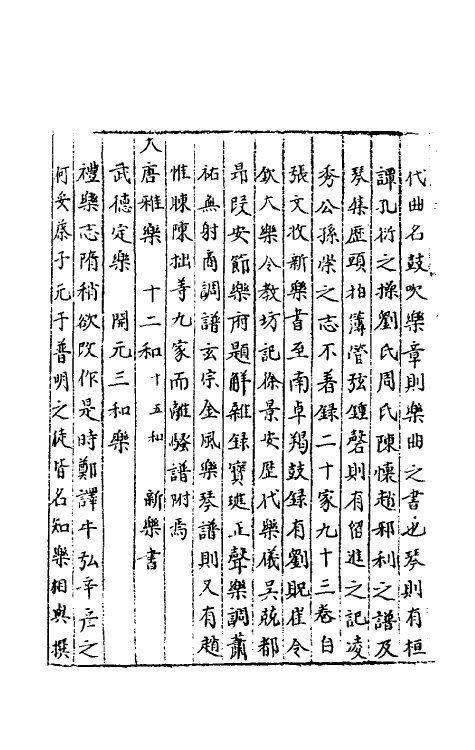 代曲名鼓吹樂章則樂曲之書也琴則有桓
譚孔衍之操劉氏周氏陳懷趙邪利之譜及
琴集歷頭拍簿管弦鍾磬則有留進之記凌
秀公孫崇之志不著録二十家九十三卷自
張文收新樂書至南卓羯鼓録有劉貺崔令
欽大樂令教坊記徐景安歴代樂儀吴兢郗
昻段安節樂府題解雜録竇璡正聲樂調蕭
祐無射商調譜玄宗金風樂琴譜則又有趙
惟暕陳拙等九家而離騷譜附焉
大唐雅樂 十二和 十五和 新樂書
武徳定樂 開元三和樂
禮樂志隋稍欲改作是時鄭譯牛弘辛彦之
何妥蔡子元于普明之徒皆名知樂相與撰